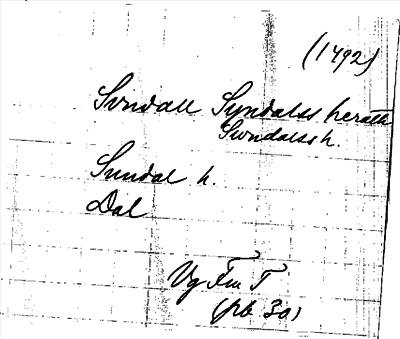 (1492)
Svndall Syndalss heradh
Swndalss h.
Sundal h.
Dal
Vg Fru T
(pb 30)